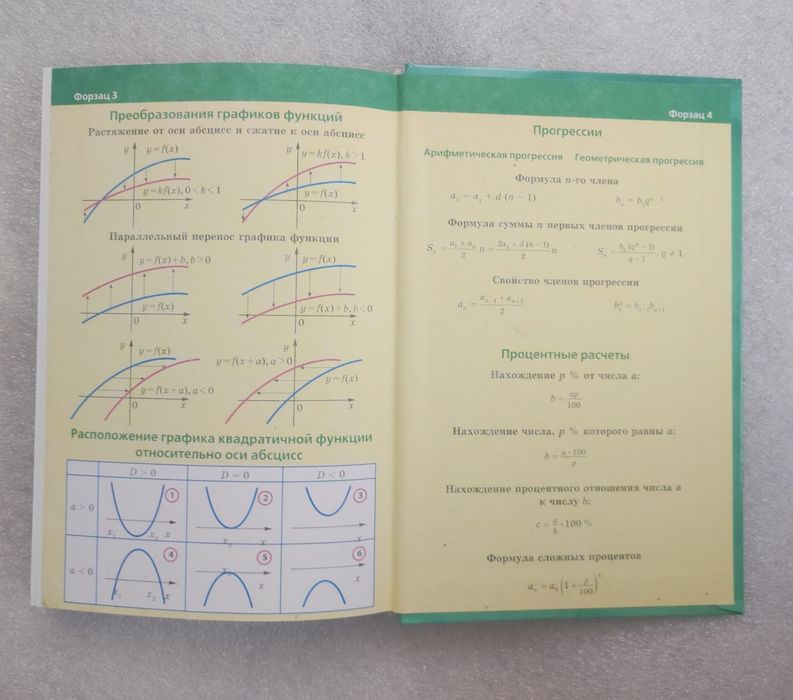 Форзац 3
Преобразования графиков функций
Растяжение от оси абсцисс и сжатие к оси абсцисс
y y=f(x)
y=kf(x), 0<k<1
0 x
y y=kf(x), k>1
y=f(x)
0 x
Параллельный перенос графика функции
y y=f(x)+b, b>0
y=f(x)
0 x
y y=f(x)
y=f(x)+b, b<0
0 x
y y=f(x)
y=f(x+a), a<0
0 x
y=f(x+a), a>0 y
y=f(x)
0 x
Расположение графика квадратичной функции
относительно оси абсцисс
D>0 D=0 D<0
a>0 1 2 3
x₁ x₂ x x₀ x x
a<0 4 5 6
x₁ x₂ x x₀ x x
Форзац 4
Прогрессии
Арифметическая прогрессия Геометрическая прогрессия
Формула n-го члена
aₙ = a₁ + d (n − 1) bₙ = b₁qⁿ⁻¹
Формула суммы n первых членов прогрессии
Sₙ = (a₁ + aₙ)/2 n = (2a₁ + d (n−1))/2 n Sₙ = (b₁ (qⁿ − 1))/(q − 1), q ≠ 1
Свойство членов прогрессии
aₙ = (aₙ₋₁ + aₙ₊₂)/2 bₙ² = bₙ₋₁bₙ₊₁
Процентные расчеты
Нахождение p % от числа a:
b = ap/100
Нахождение числа, p % которого равны a:
b = a · 100/p
Нахождение процентного отношения числа a
к числу b:
c = a/b · 100 %
Формула сложных процентов
aₙ = a₀(1 + p/100)ⁿ